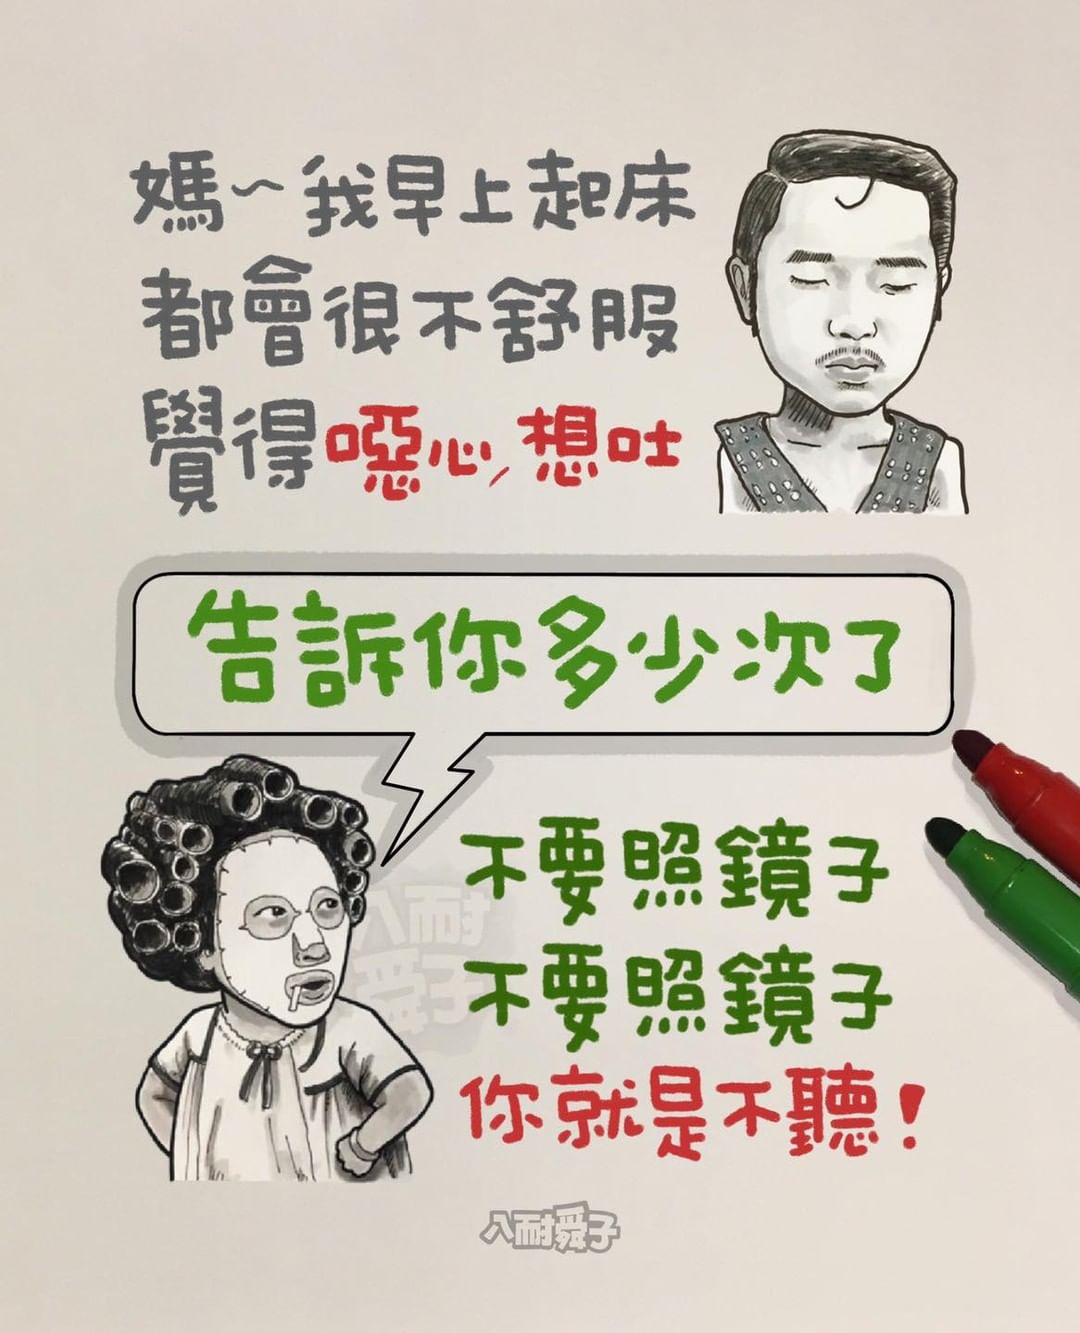 媽~我早上起床
都會很不舒服
覺得噁心,想吐
告訴你多少次了
不要照鏡子
不要照鏡子
你就是不聽!
八耐舜子
八耐
舜子